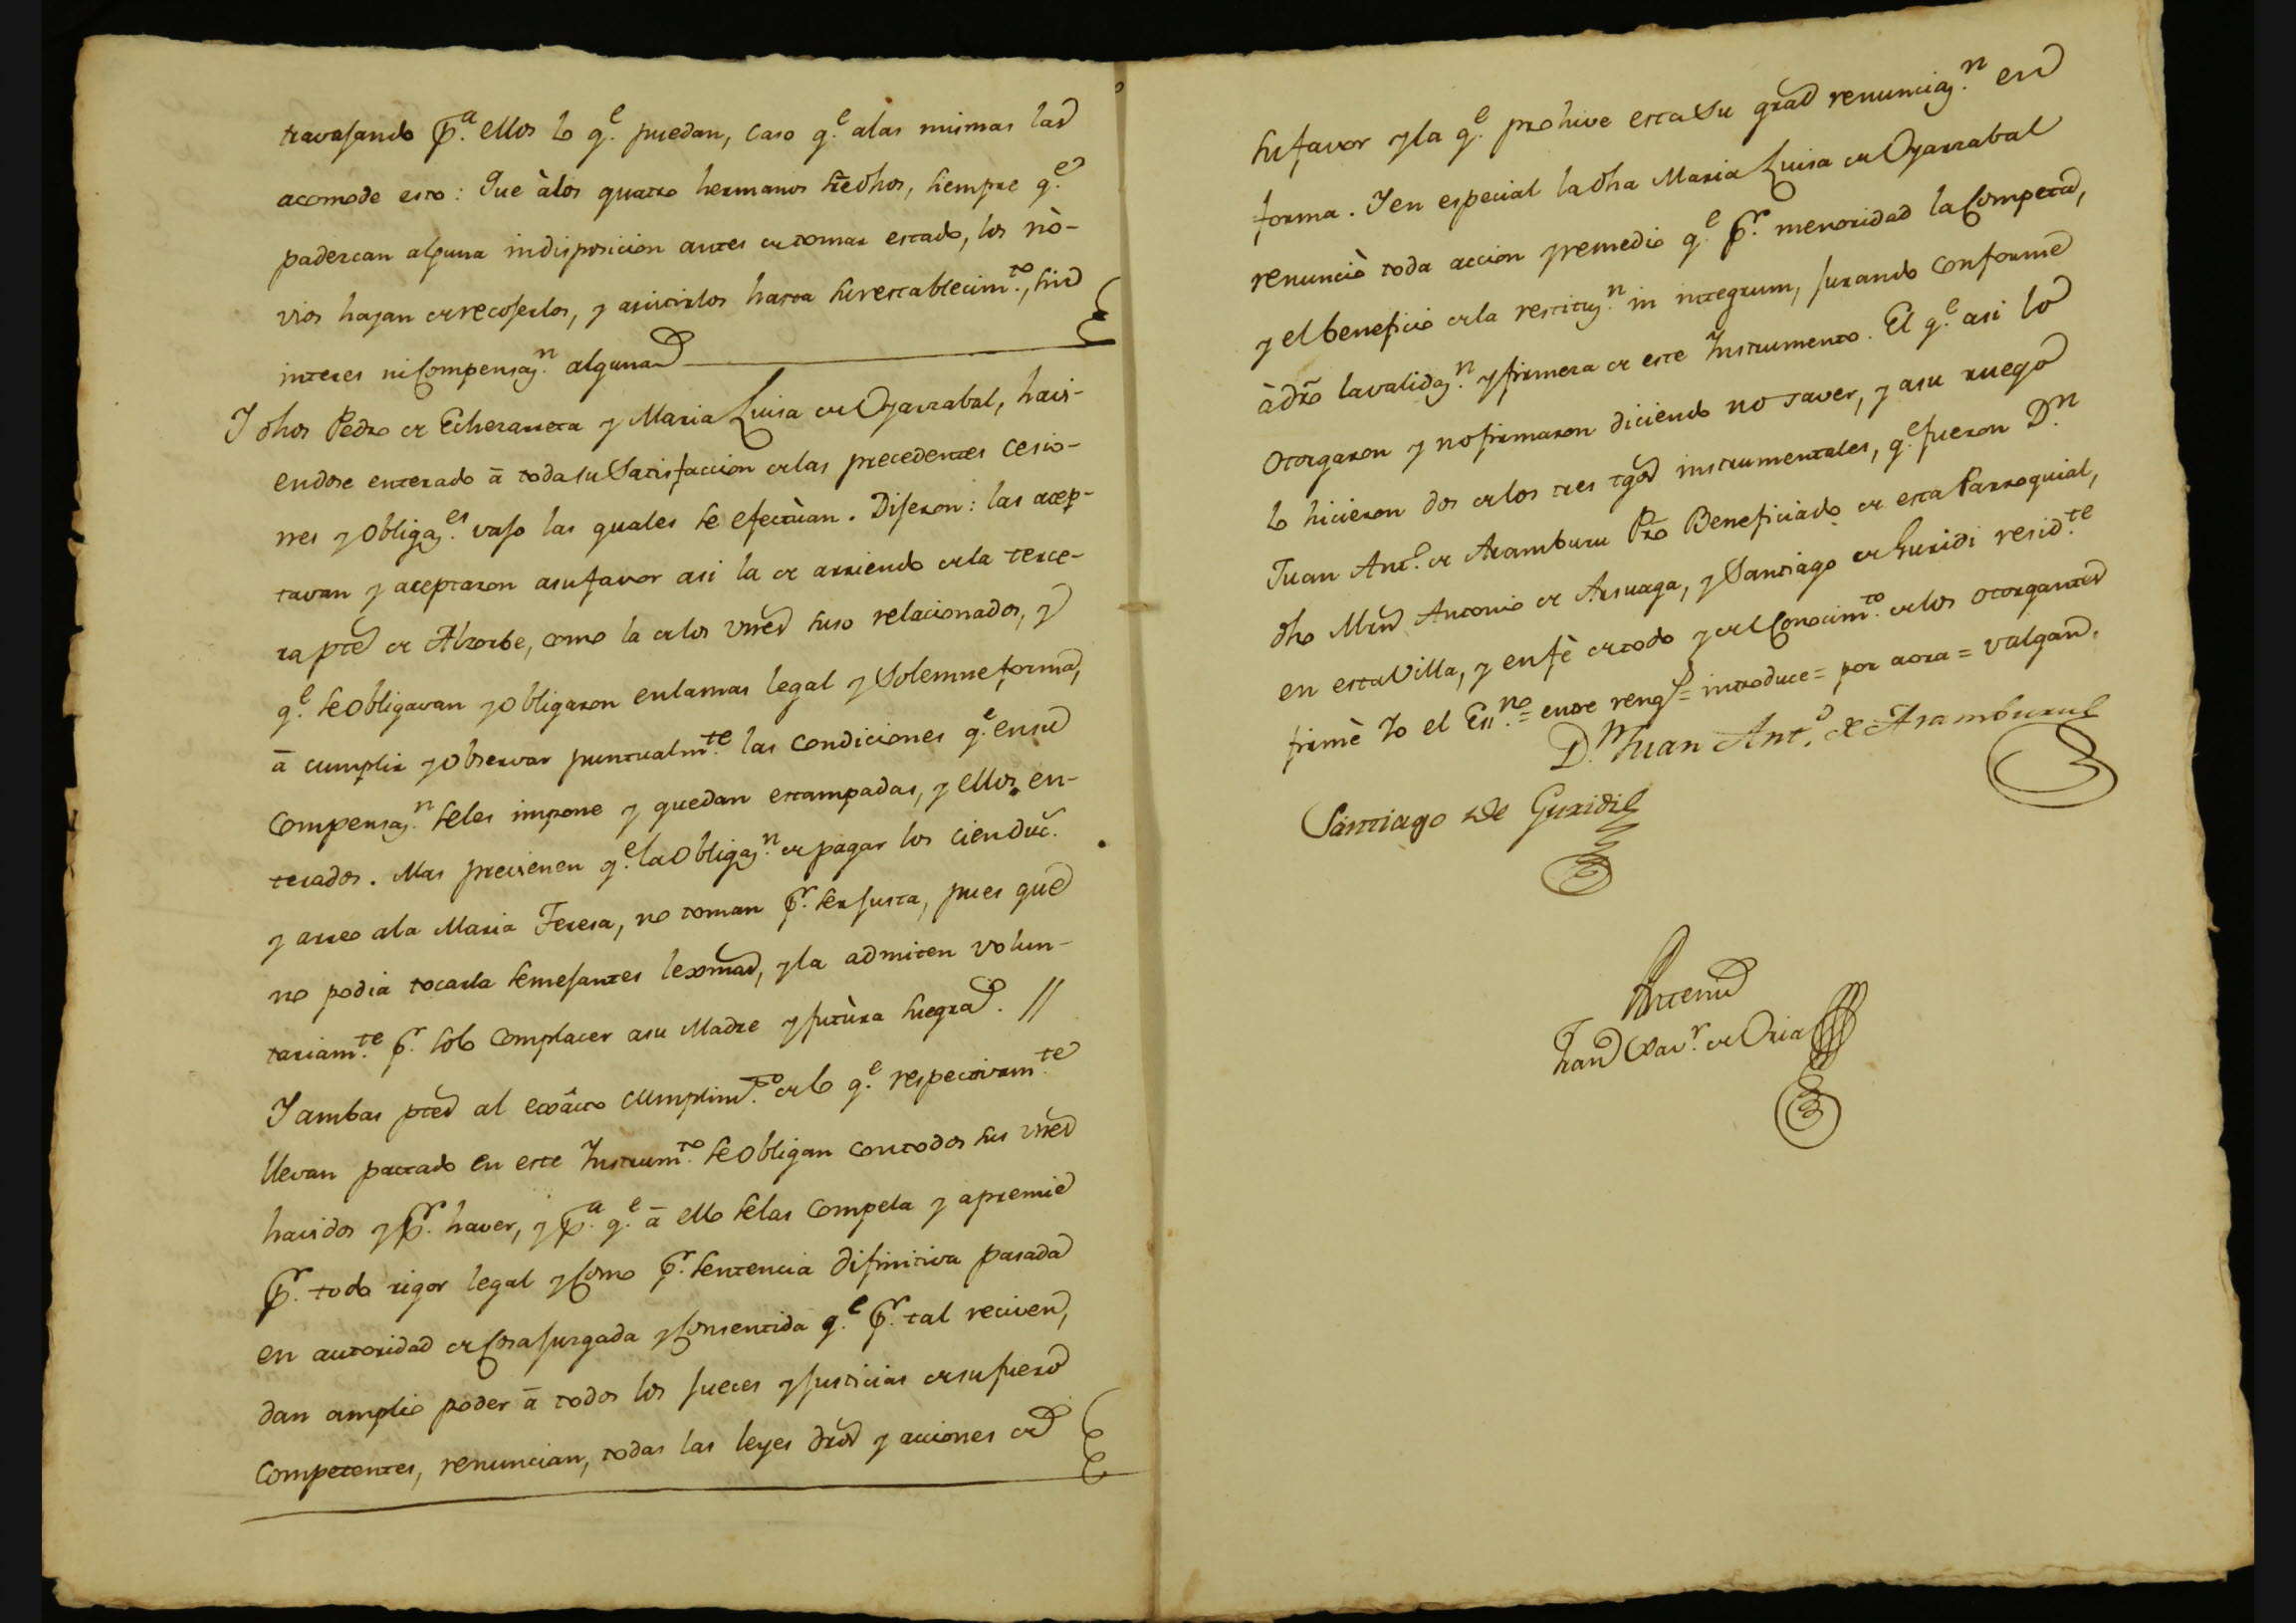 travajando p.ª ellos lo q.e puedan, caso q.e alas mismas las
acomode esto: Que àlos quatro hermanos sredhos, siempre q.e
padezcan alguna indisposicion antes de tomar estado, los nò-
vios hayan de recojerlos, y asistirlos hasta su restablecim.to, sin
interes ni Compensaz.n alguna
Y dhos Pedro de Echezarreta y Maria Luisa de Oyarzabal, havi-
endose enterado ā toda su Satisfaccion de las precedentes Cesio-
nes y Obligaz.es vajo las quales se efectùan. Dijeron: las acep-
tavan y aceptaron asu favor asi la de arriendo de la terce-
ra pte de Alzorbe, como la de los vnes suso relacionados, y
q.e se obligavan y obligaron enlamas legal y Solemne forma,
ā cumplir y observar puntualm.te las condiciones q.e en su
Compensaz.n seles impone y quedan estampadas, y ellos en-
terados. Mas previenen q.e la Obligaz.n de pagar los cien duc.
y arreo ala Maria Teresa, no toman p.r ser justa, pues que
no podia tocarla semejantes lexmas, y la admiten volun-
tariam.te p.r solo complacer asu Madre y futùra suegra. //
Y ambas ptes al exâcto cumplim.to de lo q.e respectivam.te
llevan pactado en este Instrum.to se obligan con todos sus vnes
havidos y p.r haver, y p.ª q.e ā ello selas compela y apremie
p.r todo rigor legal y Como p.r sentencia difinitiva pasada
en autoridad de Cosa juzgada y Consentida q.e p.r tal reciven,
dan amplio poder ā todos los jueces y justicias de su fuero
Competentes, renuncian, todas las leyes dros y acciones de
su favor y la q.e prohive esta su gral renunciaz.n en
forma. Y en especial la dha Maria Luisa de Oyarzabal
renunciò toda accion y remedio q.e p.r menoridad la Competa,
y el beneficio de la restituz.n in integrum, jurando conforme
à dro la validaz.n y firmeza de este Instrumento. El q.e asi lo
otorgaron y no firmaron diciendo no saver, y asu ruego
lo hicieron dos de los tres tgos instrumentales, q.e fueron D.n
Juan Ant.o de Aramburu Pro Beneficiado de esta Parroquial,
dho Mrn Antonio de Arsuaga, y Santiago de Guridi resid.te
en esta Villa, y en fè de todo y de el Conocim.to de los otorgantes
firmè Yo el Ess.no = entre rengs = introduce = por aora = valgan.
D.n Juan Ant.o de Aramburu
Santiago de Guridi
Antemi
Fran Xav.r de Oria